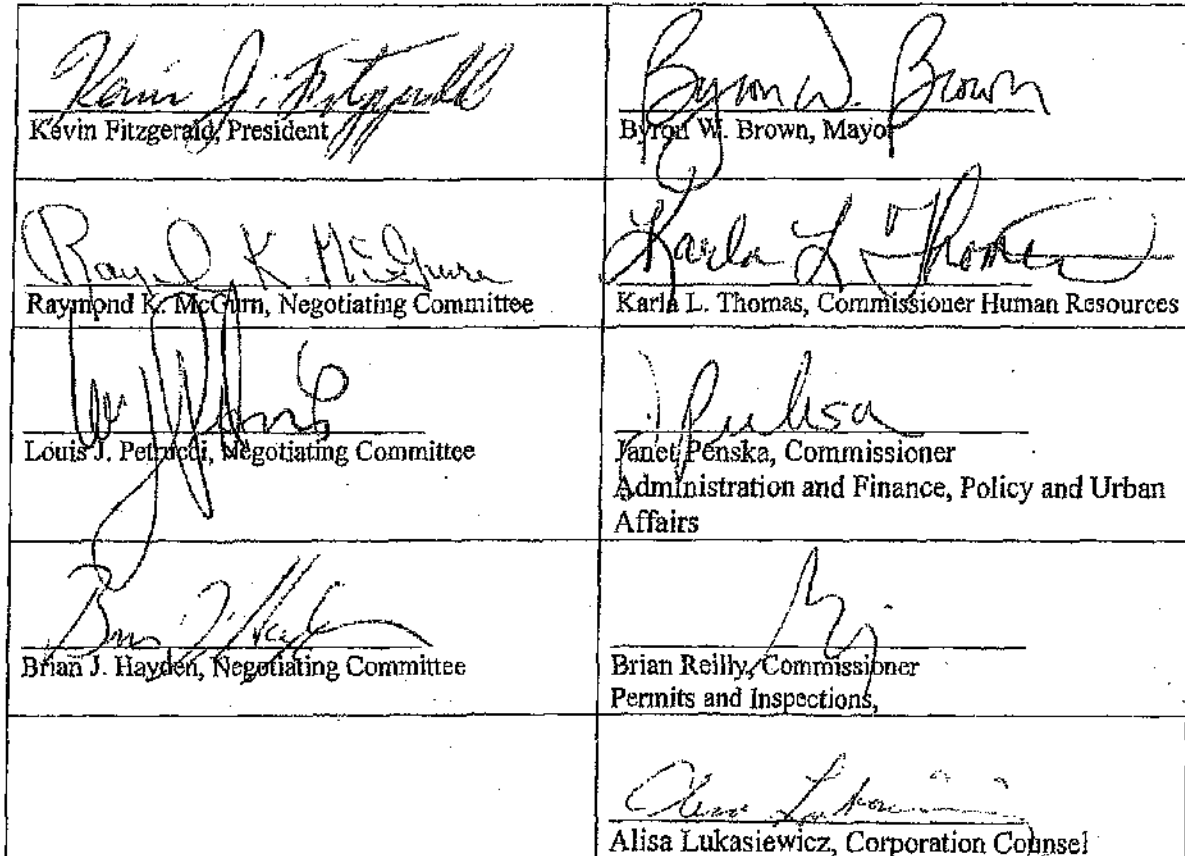 Kevin J. Fitzgerald
Kevin Fitzgerald, President
Byron W. Brown
Byron W. Brown, Mayor
Raymond K. McGurn, Negotiating Committee
Karla L Thomas
Karla L. Thomas, Commissioner Human Resources
Louis J. Petrucci, Negotiating Committee
Janet Penska, Commissioner
Administration and Finance, Policy and Urban
Affairs
Brian J. Hayden, Negotiating Committee
Brian Reilly, Commissioner
Permits and Inspections,
Alisa Lukasiewicz, Corporation Counsel